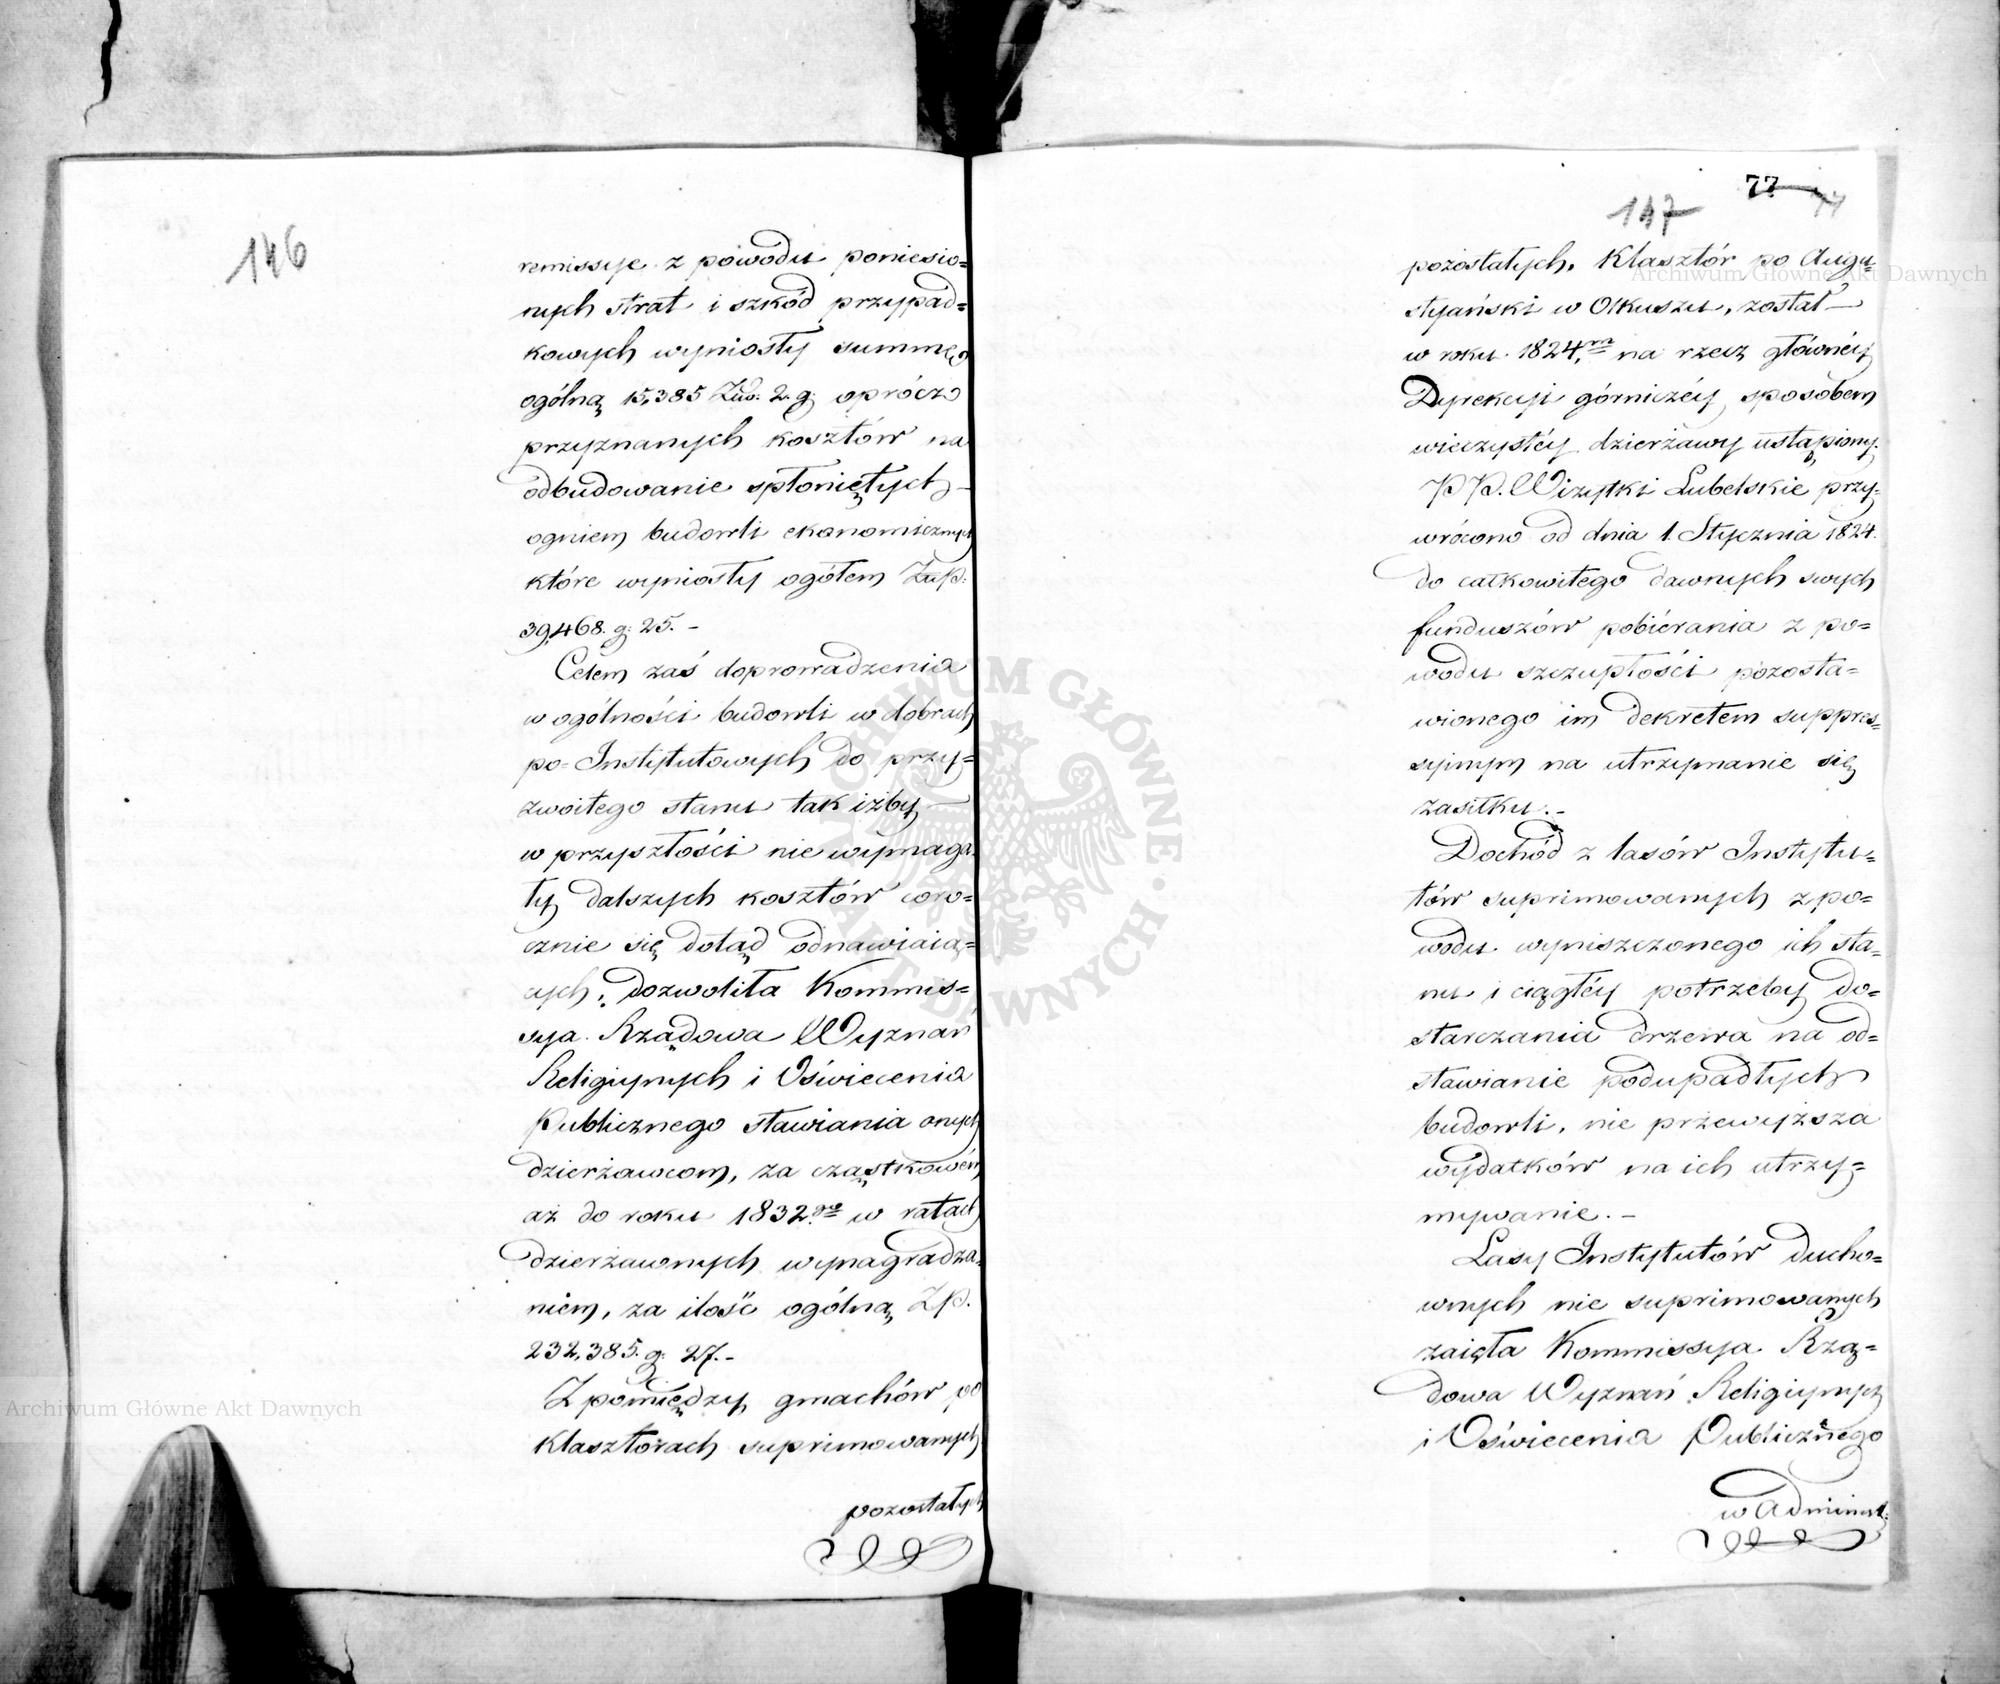 146
remissyje z powodu poniesio=
nych strat i szkód przypad=
kowych wyniosły summę
ogólną 15,385 Złp. 2. g. oprócz
przyznanych kosztów na
odbudowanie spłoniętych
ogniem budowli ekonomicznych
które wyniosły ogółem Złp.
39,468. g: 25. –
Celem zaś doprowadzenia
w ogólności budowli w dobrach
po-Instytutowych do przy=
zwoitego stanu tak iżby
w przyszłości nie wymaga
ły dalszych kosztów coro=
cznie się dotąd odnawiaią=
cych, dozwoliła Kommis=
sya Rządowa Wyznań
Religiynych i Oświecenia
Publicznego stawiania onych
dzierżawcom, za cząstkowém
aż do roku 1832.go w ratach
dzierżawnych wynagradza
niem, za ilość ogólną Zp.
232,385. g. 27. –
Z pomiędzy gmachów po
klasztorach suprimowanych
pozostałych
77
147
pozostałych. Klasztór po Augu=
styański w Olkuszu, został
w roku 1824,m na rzecz głównéy
Dyrekcyi górniczéy sposobem
wieczystéy dzierżawy ustąpiony.
PP. Wizytki Lubelskie przy=
wrócono od dnia 1. Stycznia 1824.
do całkowitego dawnych swych
funduszów pobiérania z po=
wodu szczupłości pozosta=
wionego im dekretem suppres=
syinym na utrzymanie się
zasiłku. –
Dochód z lasów Instytu=
tów suprimowanych z po=
wodu wyniszczonego ich sta=
nu i ciągłéy potrzeby do=
starczania drzewa na od=
stawianie podupadłych
budowli, nie przewyższa
wydatków na ich utrzy=
mywanie. –
Lasy Instytutów ducho=
wnych nie suprimowanych
zaięła Kommissya Rzą=
dowa Wyznań Religiynych
i Oświecenia Publicznego
w Administ:
Archiwum Główne Akt Dawnych
Archiwum Główne Akt Dawnych
ARCHIWUM GŁÓWNE AKT DAWNYCH